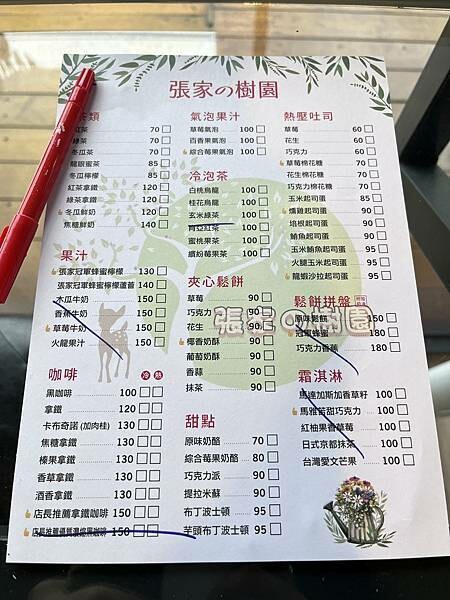 張家の樹園
茶類
紅茶 70
綠茶 70
冬瓜茶 70
龍眼蜜茶 85
冬瓜檸檬 85
紅茶拿鐵 120
綠茶拿鐵 120
冬瓜鮮奶 120
焦糖鮮奶 140
果汁
張家冠軍蜂蜜檸檬 130
張家冠軍蜂蜜檸檬蘆薈 140
木瓜牛奶 150
香蕉牛奶 150
草莓牛奶 150
火龍果汁 150
咖啡 冷 熱
黑咖啡 100
拿鐵 120
卡布奇諾 (加肉桂) 130
焦糖拿鐵 130
榛果拿鐵 130
香草拿鐵 130
酒香拿鐵 130
店長推薦拿鐵咖啡 150
150
氣泡果汁
草莓氣泡 100
百香果氣泡 100
綜合莓果氣泡 100
冷泡茶
白桃烏龍 100
桂花烏龍 100
玄米綠茶 100
100
蜜桃果茶 100
繽紛莓果茶 100
夾心鬆餅
草莓 90
巧克力 90
花生 90
椰香奶酥 90
葡萄奶酥 90
香蒜 90
抹茶 90
甜點
原味奶酪 70
綜合莓果奶酪 80
巧克力派 90
提拉米蘇 90
布丁波士頓 95
芋頭布丁波士頓 95
熱壓吐司
草莓 60
花生 60
巧克力 60
草莓棉花糖 70
花生棉花糖 70
巧克力棉花糖 70
玉米起司蛋 85
燻雞起司蛋 90
培根起司蛋 90
鮪魚起司蛋 90
玉米鮪魚起司蛋 95
火腿玉米起司蛋 95
龍蝦沙拉起司蛋 95
鬆餅拼盤
原味鬆餅 150
冠軍蜂蜜 180
巧克力香蕉 180
霜淇淋
馬達加斯加香草籽 100
馬雅苦甜巧克力 100
紅柚果香草莓 100
日式京都抹茶 100
台灣愛文芒果 100
張家の樹園